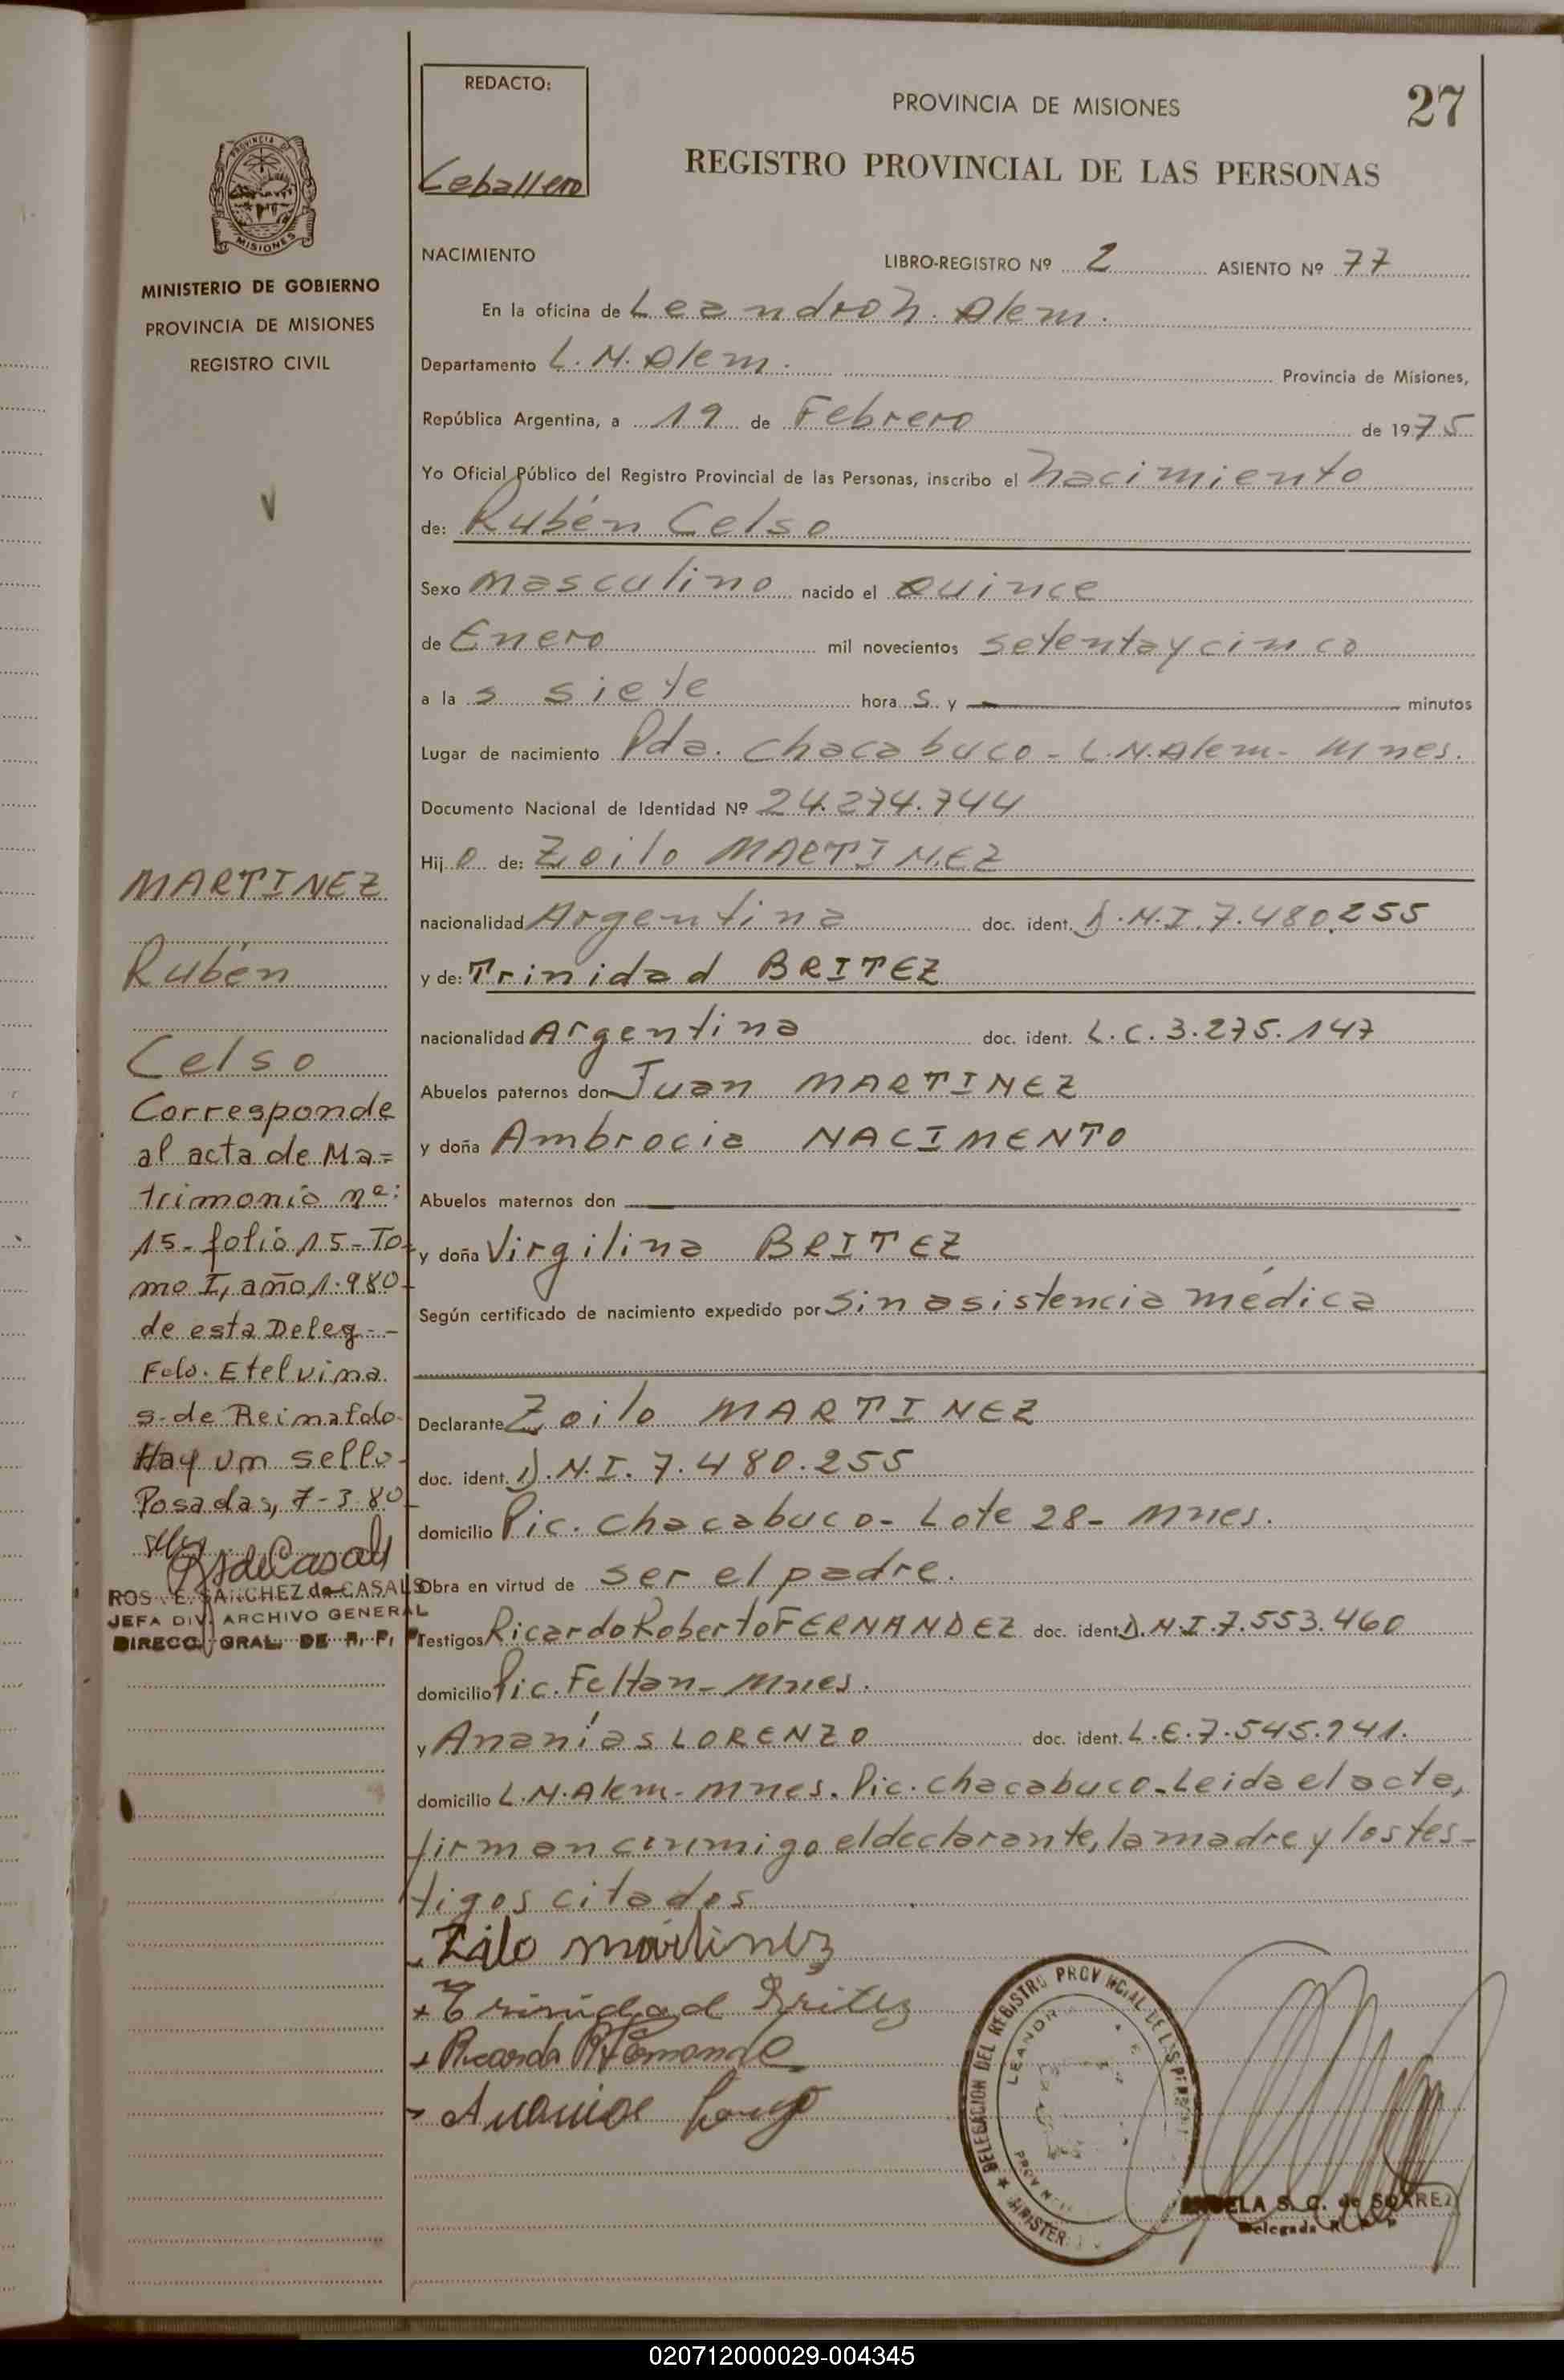 REDACTO:
Ceballero
PROVINCIA DE MISIONES
27
REGISTRO PROVINCIAL DE LAS PERSONAS
PROVINCIA DE
MISIONES
MINISTERIO DE GOBIERNO
PROVINCIA DE MISIONES
REGISTRO CIVIL
NACIMIENTO LIBRO-REGISTRO Nº 2 ASIENTO Nº 77
En la oficina de Leandro N. Alem.
Departamento L. N. Alem. Provincia de Misiones,
República Argentina, a 19 de Febrero de 1975
Yo Oficial Público del Registro Provincial de las Personas, inscribo el nacimiento
de: Rubén Celso
Sexo masculino nacido el quince
de Enero mil novecientos setenta y cinco
a las siete horas y minutos
Lugar de nacimiento Pda. Chacabuco - L.N. Alem - Mnes.
Documento Nacional de Identidad Nº 24.274.744
Hijo de: Zoilo MARTINEZ
nacionalidad Argentina doc. ident. D.N.I. 7.480.255
y de: Trinidad BRITEZ
nacionalidad Argentina doc. ident. L.C. 3.275.147
Abuelos paternos don Juan MARTINEZ
y doña Ambrocia NACIMENTO
Abuelos maternos don
y doña Virgilina BRITEZ
Según certificado de nacimiento expedido por sin asistencia médica
Declarante Zoilo MARTINEZ
doc. ident. D.N.I. 7.480.255
domicilio Pic. Chacabuco - Lote 28 - Mnes.
Obra en virtud de ser el padre.
Testigos Ricardo Roberto FERNANDEZ doc. ident. D.N.I. 7.553.460
domicilio Pic. Feltan - Mnes.
y Ananías LORENZO doc. ident. L.E. 7.545.941.
domicilio L.N. Alem - Mnes. Pic. Chacabuco - Leida el acta,
firman conmigo el declarante, la madre y los tes-
tigos citados
Zilo martinez
Trinidad Britez
Ricardo R Fernande
MARTINEZ
Rubén
Celso
Corresponde
al acta de Ma=
trimonio nº:
15 - folio 15 - To-
mo I, año 1.980-
de esta Deleg--
Fdo. Etelvina
S. de Reinafdo-
Hay un sello-
Posadas, 7-3-80-
RSdeCasals
ROS E. SANCHEZ de CASALS
JEFA DIV. ARCHIVO GENERAL
DIRECC. GRAL. DE R. P. P.
DELEGACION DEL REGISTRO PROVINCIAL DE LAS PERSO
LEANDR
MINISTER
S. C. de SOAREZ
Delegada
020712000029-004345